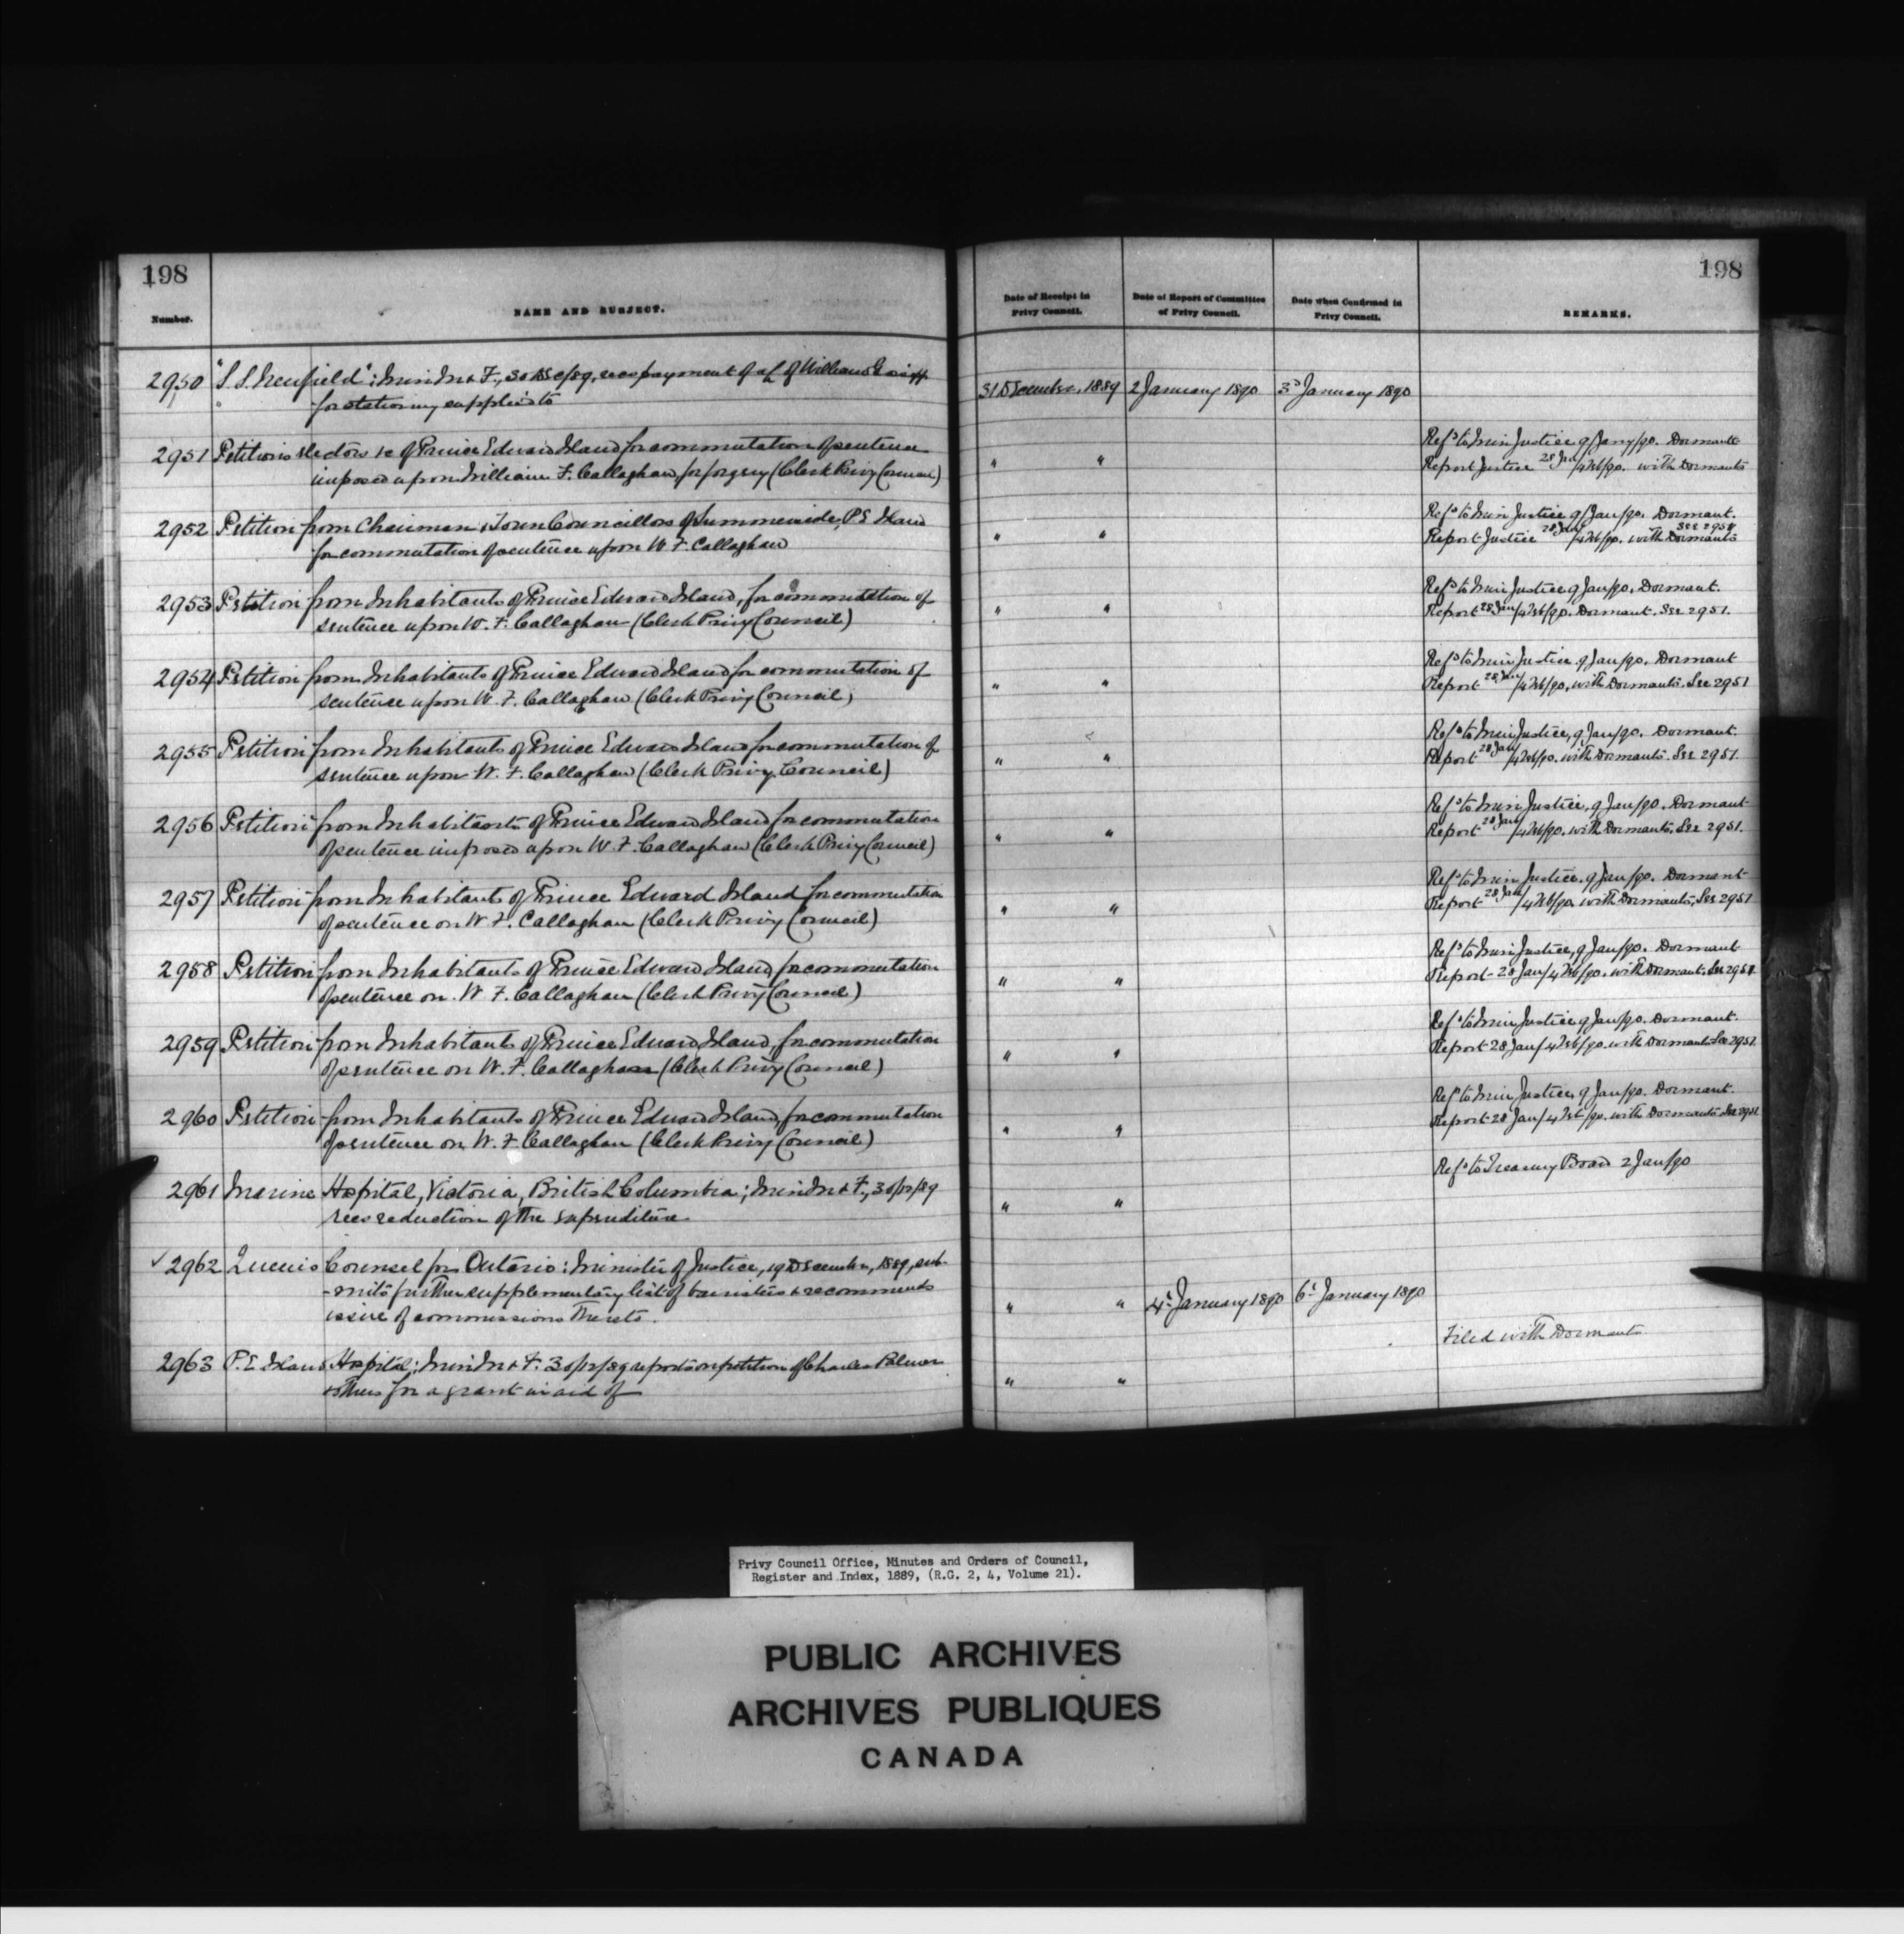 198
198
Number.
NAME AND SUBJECT.
Date of Receipt in
Privy Council.
Date of Report of Committee
of Privy Council.
Date when Confirmed in
Privy Council.
REMARKS.
2950 "S.S. Newfield": Min M & F, 30 Dec/89, recs payment of a/c of William
for stationery supplied to
31 December, 1889 2 January 1890 3d January 1890
2951 Petitions electors &c of Prince Edward Island for commutation of sentence
imposed upon William F. Callaghan for forgery (Clerk Privy Council)
" "
Refd to Min Justice 9/Jany/90. Dormant
Report Justice 28 Jan/4 Feb/90. with Dormants
2952 Petition from Chairman & Town Councillors of Summerside, P.E. Island
for commutation of sentence upon W F. Callaghan
" "
Refd to Min Justice 9/Jan/90. Dormant.
Report Justice 28 Jan/4 Feb/90. with Dormants See 2951
2953 Petition from Inhabitants of Prince Edward Island, for commutation of
sentence upon W. F. Callaghan (Clerk Privy Council)
" "
Refd to Min Justice 9 Jan/90. Dormant.
Report 28 Jan/4 Feb/90. Dormant. See 2951.
2954 Petition from Inhabitants of Prince Edward Island for commutation of
sentence upon W. F. Callaghan (Clerk Privy Council)
" "
Refd to Min Justice 9 Jan/90. Dormant
Report 28 Jan/4 Feb/90, with Dormants. See 2951
2955 Petition from Inhabitants of Prince Edward Island for commutation of
sentence upon W. F. Callaghan (Clerk Privy Council)
" "
Refd to Min Justice, 9 Jan/90. Dormant.
Report 28 Jan/4 Feb/90. with Dormants. See 2951.
2956 Petition from Inhabitants of Prince Edward Island for commutation
of sentence imposed upon W. F. Callaghan (Clerk Privy Council)
" "
Refd to Min Justice, 9 Jan/90. Dormant
Report 28 Jan/4 Feb/90. with Dormants. See 2951.
2957 Petition from Inhabitants of Prince Edward Island for commutation
of sentence on W. F. Callaghan (Clerk Privy Council)
" "
Refd to Min Justice. 9 Jan/90. Dormant
Report 28 Jan/4 Feb/90 with Dormants, See 2951
2958 Petition from Inhabitants of Prince Edward Island for commutation
of sentence on W F. Callaghan (Clerk Privy Council)
" "
Refd to Min Justice, 9 Jan/90. Dormant
Report 28 Jan/4 Feb/90. with Dormant. See 2951
2959 Petition from Inhabitants of Prince Edward Island, for commutation
of sentence on W. F. Callaghan (Clerk Privy Council)
" "
Refd to Min Justice 9 Jan/90. Dormant.
Report 28 Jan/4 Feb/90. with Dormants See 2951
2960 Petition from Inhabitants of Prince Edward Island for commutation
of sentence on W. F. Callaghan (Clerk Privy Council)
" "
Refd to Min Justice, 9 Jan/90. Dormant.
Report 28 Jan/4 Feb/90. with Dormants. See 2951
2961 Marine Hospital, Victoria, British Columbia; Min M & F., 30/12/89
recs reduction of the expenditure
" "
Refd to Treasury Board 2 Jan/90
2962 Queens Counsel for Ontario: Minister of Justice, 19 December, 1889, sub-
-mits further supplementary list of barristers & recommends
issue of commissions thereto.
" " 4th January 1890 6th January 1890
2963 P.E. Island Hospital: Min M & F. 30/12/89 reports on petition of Charles Palmer
& others for a grant in aid of
" "
Filed with Dormants
Privy Council Office, Minutes and Orders of Council,
Register and Index, 1889, (R.G. 2, 4, Volume 21).
PUBLIC ARCHIVES
ARCHIVES PUBLIQUES
CANADA